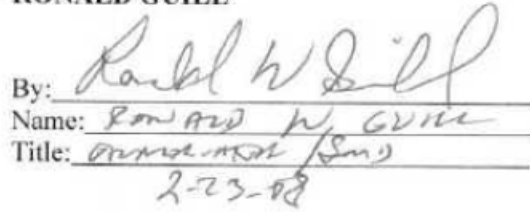 RONALD GUILL
By: Ronald W Guill
Name: RONALD W. GUILL
Title:
2-23-08